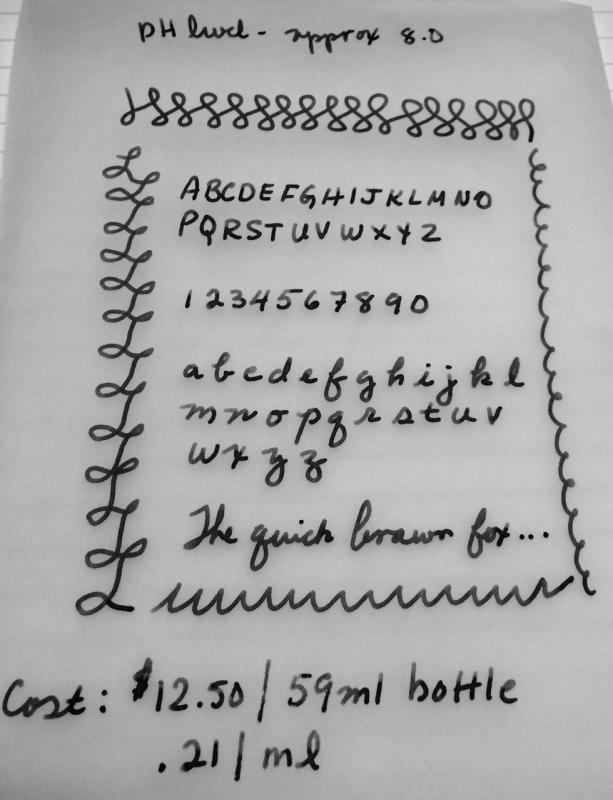 pH level - approx 8.0
ABCDEFGHIJKLMNO
PQRSTUVWXYZ
1234567890
abcdefghijkl
mnopqrstuv
wxyz
The quick brown fox...
Cost: $12.50 / 59ml bottle
.21 / ml